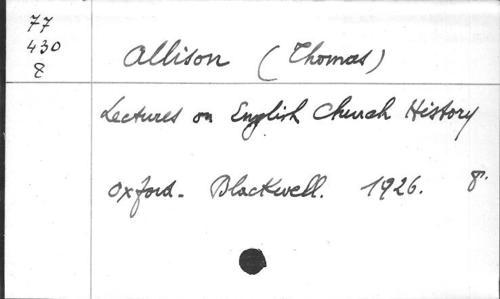 77
430
8
Allison (Thomas)
Lectures on English Church History
Oxford. Blackwell. 1926. 8°.